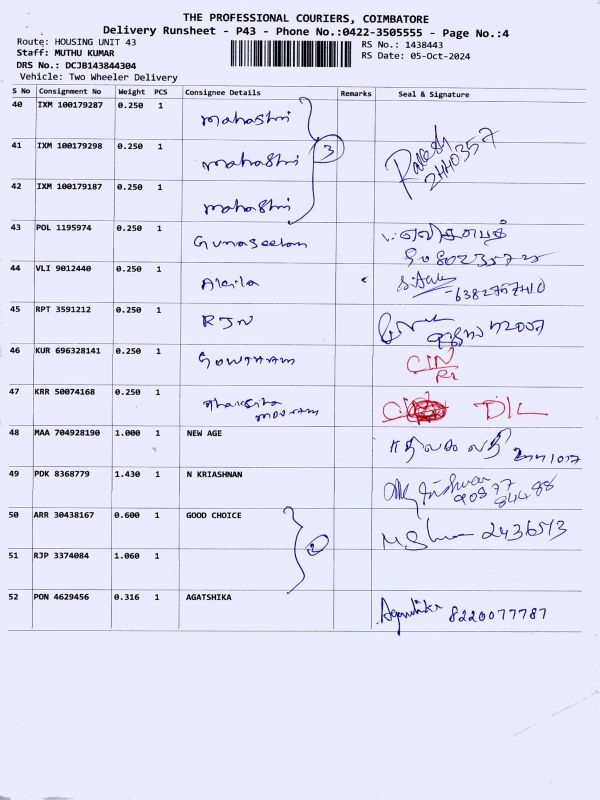 THE PROFESSIONAL COURIERS, COIMBATORE
Delivery Runsheet - P43 - Phone No.:0422-3505555 - Page No.:4
Route: HOUSING UNIT 43
RS No.: 1438443
Staff: MUTHU KUMAR
RS Date: 05-Oct-2024
DRS No.: DCJB143844304
Vehicle: Two Wheeler Delivery
S No Consignment No Weight PCS Consignee Details Remarks Seal & Signature
40 IXM 100179287 0.250 1 mahashri
41 IXM 100179298 0.250 1 mahashri 3 Rakesh
42 IXM 100179187 0.250 1 mahashri
43 POL 1195974 0.250 1 Gunaseelan
44 VLI 9012440 0.250 1 Akila
45 RPT 3591212 0.250 1 RJN
46 KUR 696328141 0.250 1 GOWTHAM
47 KRR 50074168 0.250 1 D/L
48 MAA 704928190 1.000 1 NEW AGE
49 PDK 8368779 1.430 1 N KRIASHNAN
50 ARR 30438167 0.600 1 GOOD CHOICE 2
51 RJP 3374084 1.060 1
52 PON 4629456 0.316 1 AGATSHIKA 8220077787